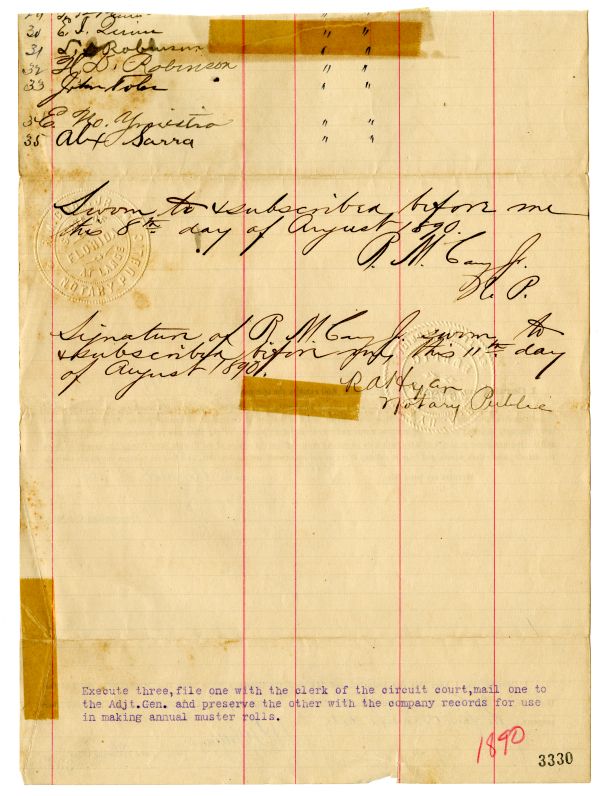 30 C. I. Quinn " "
31 Robinson " "
32 H. D. Robinson " "
33 John " "
34 E. No. " "
35 Alex Sarra " "
Sworn to & subscribed before me
this 8th day of August 1890.
R. M. Cay Jr.
N. P.
Signature of R. M. Cay Jr. sworn to
& subscribed before me, this 11th day
of August 1890.
R A Hyan
Notary Public
FLORIDA
AT LARGE
NOTARY PUBLIC
Execute three,file one with the clerk of the circuit court,mail one to
the Adjt.Gen. and preserve the other with the company records for use
in making annual muster rolls.
1890
3330